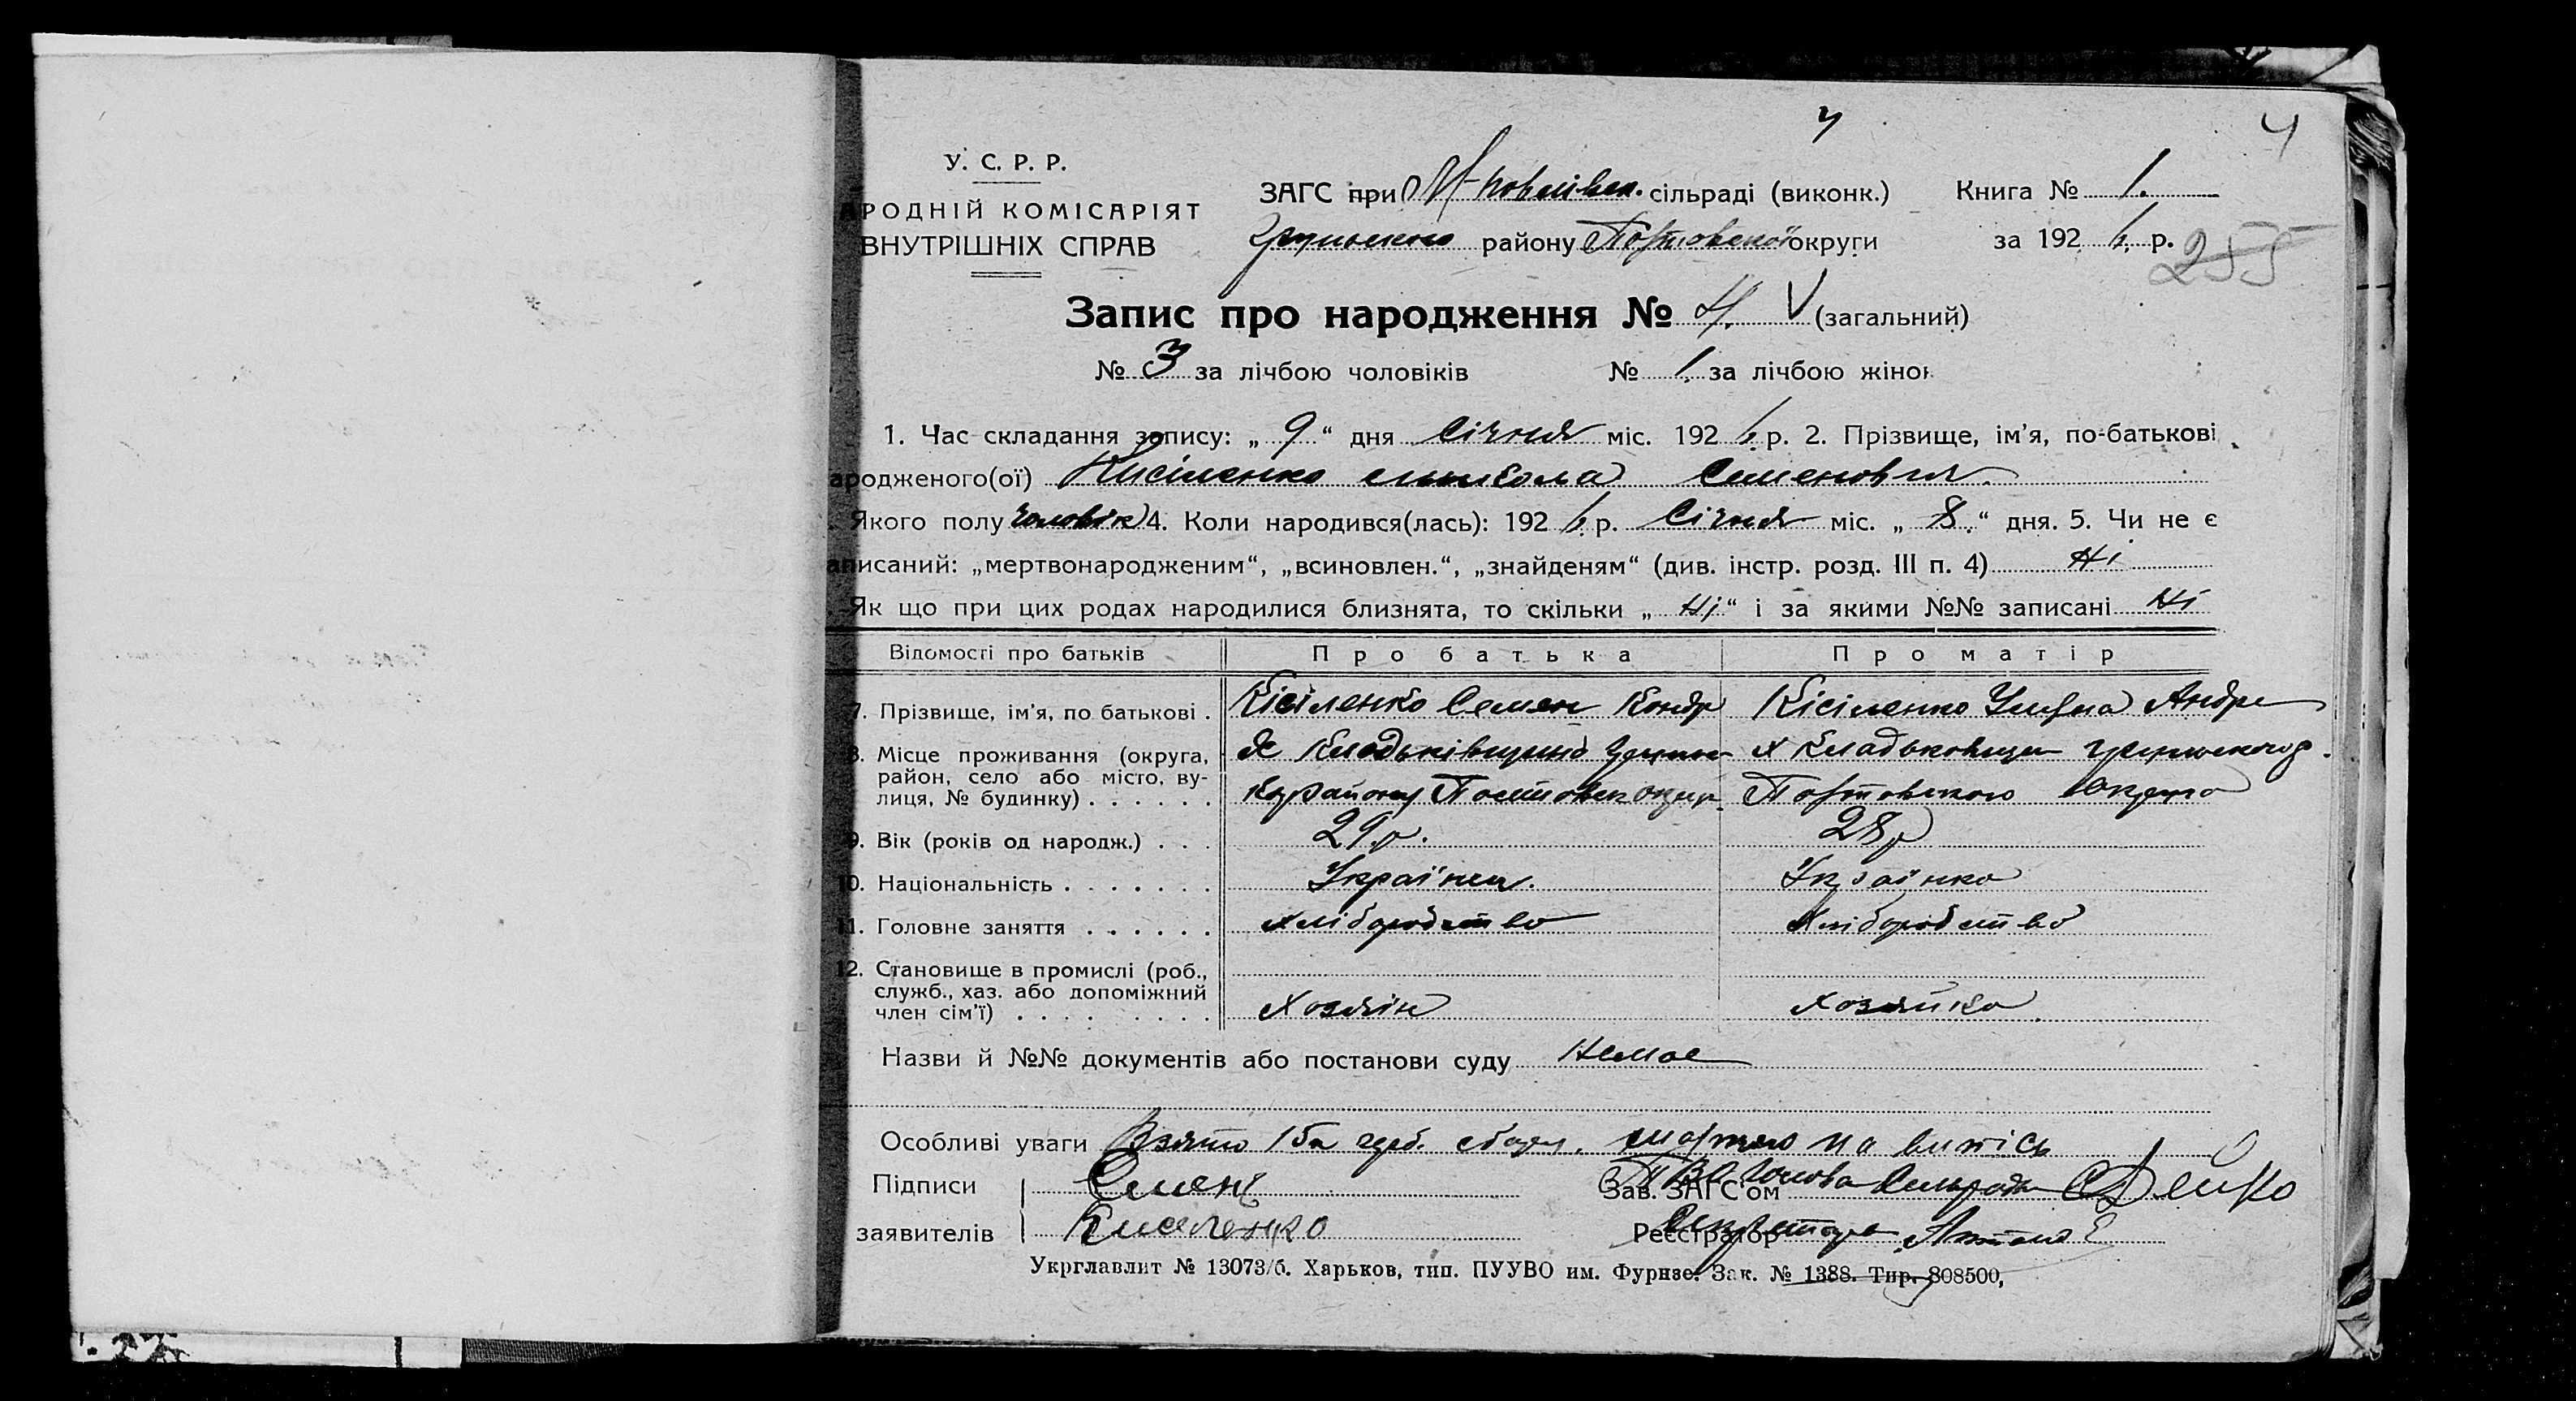 4
4
У. С. Р. Р.
АРОДНІЙ КОМІСАРІЯТ
ВНУТРІШНІХ СПРАВ
ЗАГС при сільраді (виконк.) Книга № 1.
району Полтовської округи за 192 6 р.
255
Запис про народження № 4. V (загальний)
№ 3 за лічбою чоловіків № 1 за лічбою жінок
1. Час складання запису: „ 9 “ дня Січня міс. 192 6 р. 2. Прізвище, ім’я, по-батькові
ародженого(ої) Кисіленко Микола Семенович.
Якого полу чоловік 4. Коли народився(лась): 192 6 р. Січня міс. „ 8 “ дня. 5. Чи не є
аписаний: „мертвонародженим“, „всиновлен.“, „знайденям“ (див. інстр. розд. III п. 4) Ні
Як що при цих родах народилися близнята, то скільки „ Ні “ і за якими №№ записані Ні
Відомості про батьків Про батька Про матір
7. Прізвище, ім’я, по батькові . Кісіленко Семен Кондр Кісіленко Андре
8. Місце проживання (округа,
район, село або місто, ву-
лиця, № будинку) . . . . . . Х
району Полтовського Округа
9. Вік (років од народж.) . . . 29 р. 28 р
10. Національність . . . . . . . Українец. Українка
11. Головне заняття . . . . . . хліборобство хліборобство
12. Становище в промислі (роб.,
служб., хаз. або допоміжний
член сім’ї) . . . . . . . . Хозяін хозяйка
Назви й №№ документів або постанови суду Немає
Особливі уваги Взято 15к герб. збору. на витісь
Підписи Семен Зав. ЗАГС’ом Голова Сільради
заявителів Киселенко Реєстратор Секретарь
Укрглавлит № 13073/б. Харьков, тип. ПУУВО им. Фурнзе. Зак. № 1388. Тир. 808500,